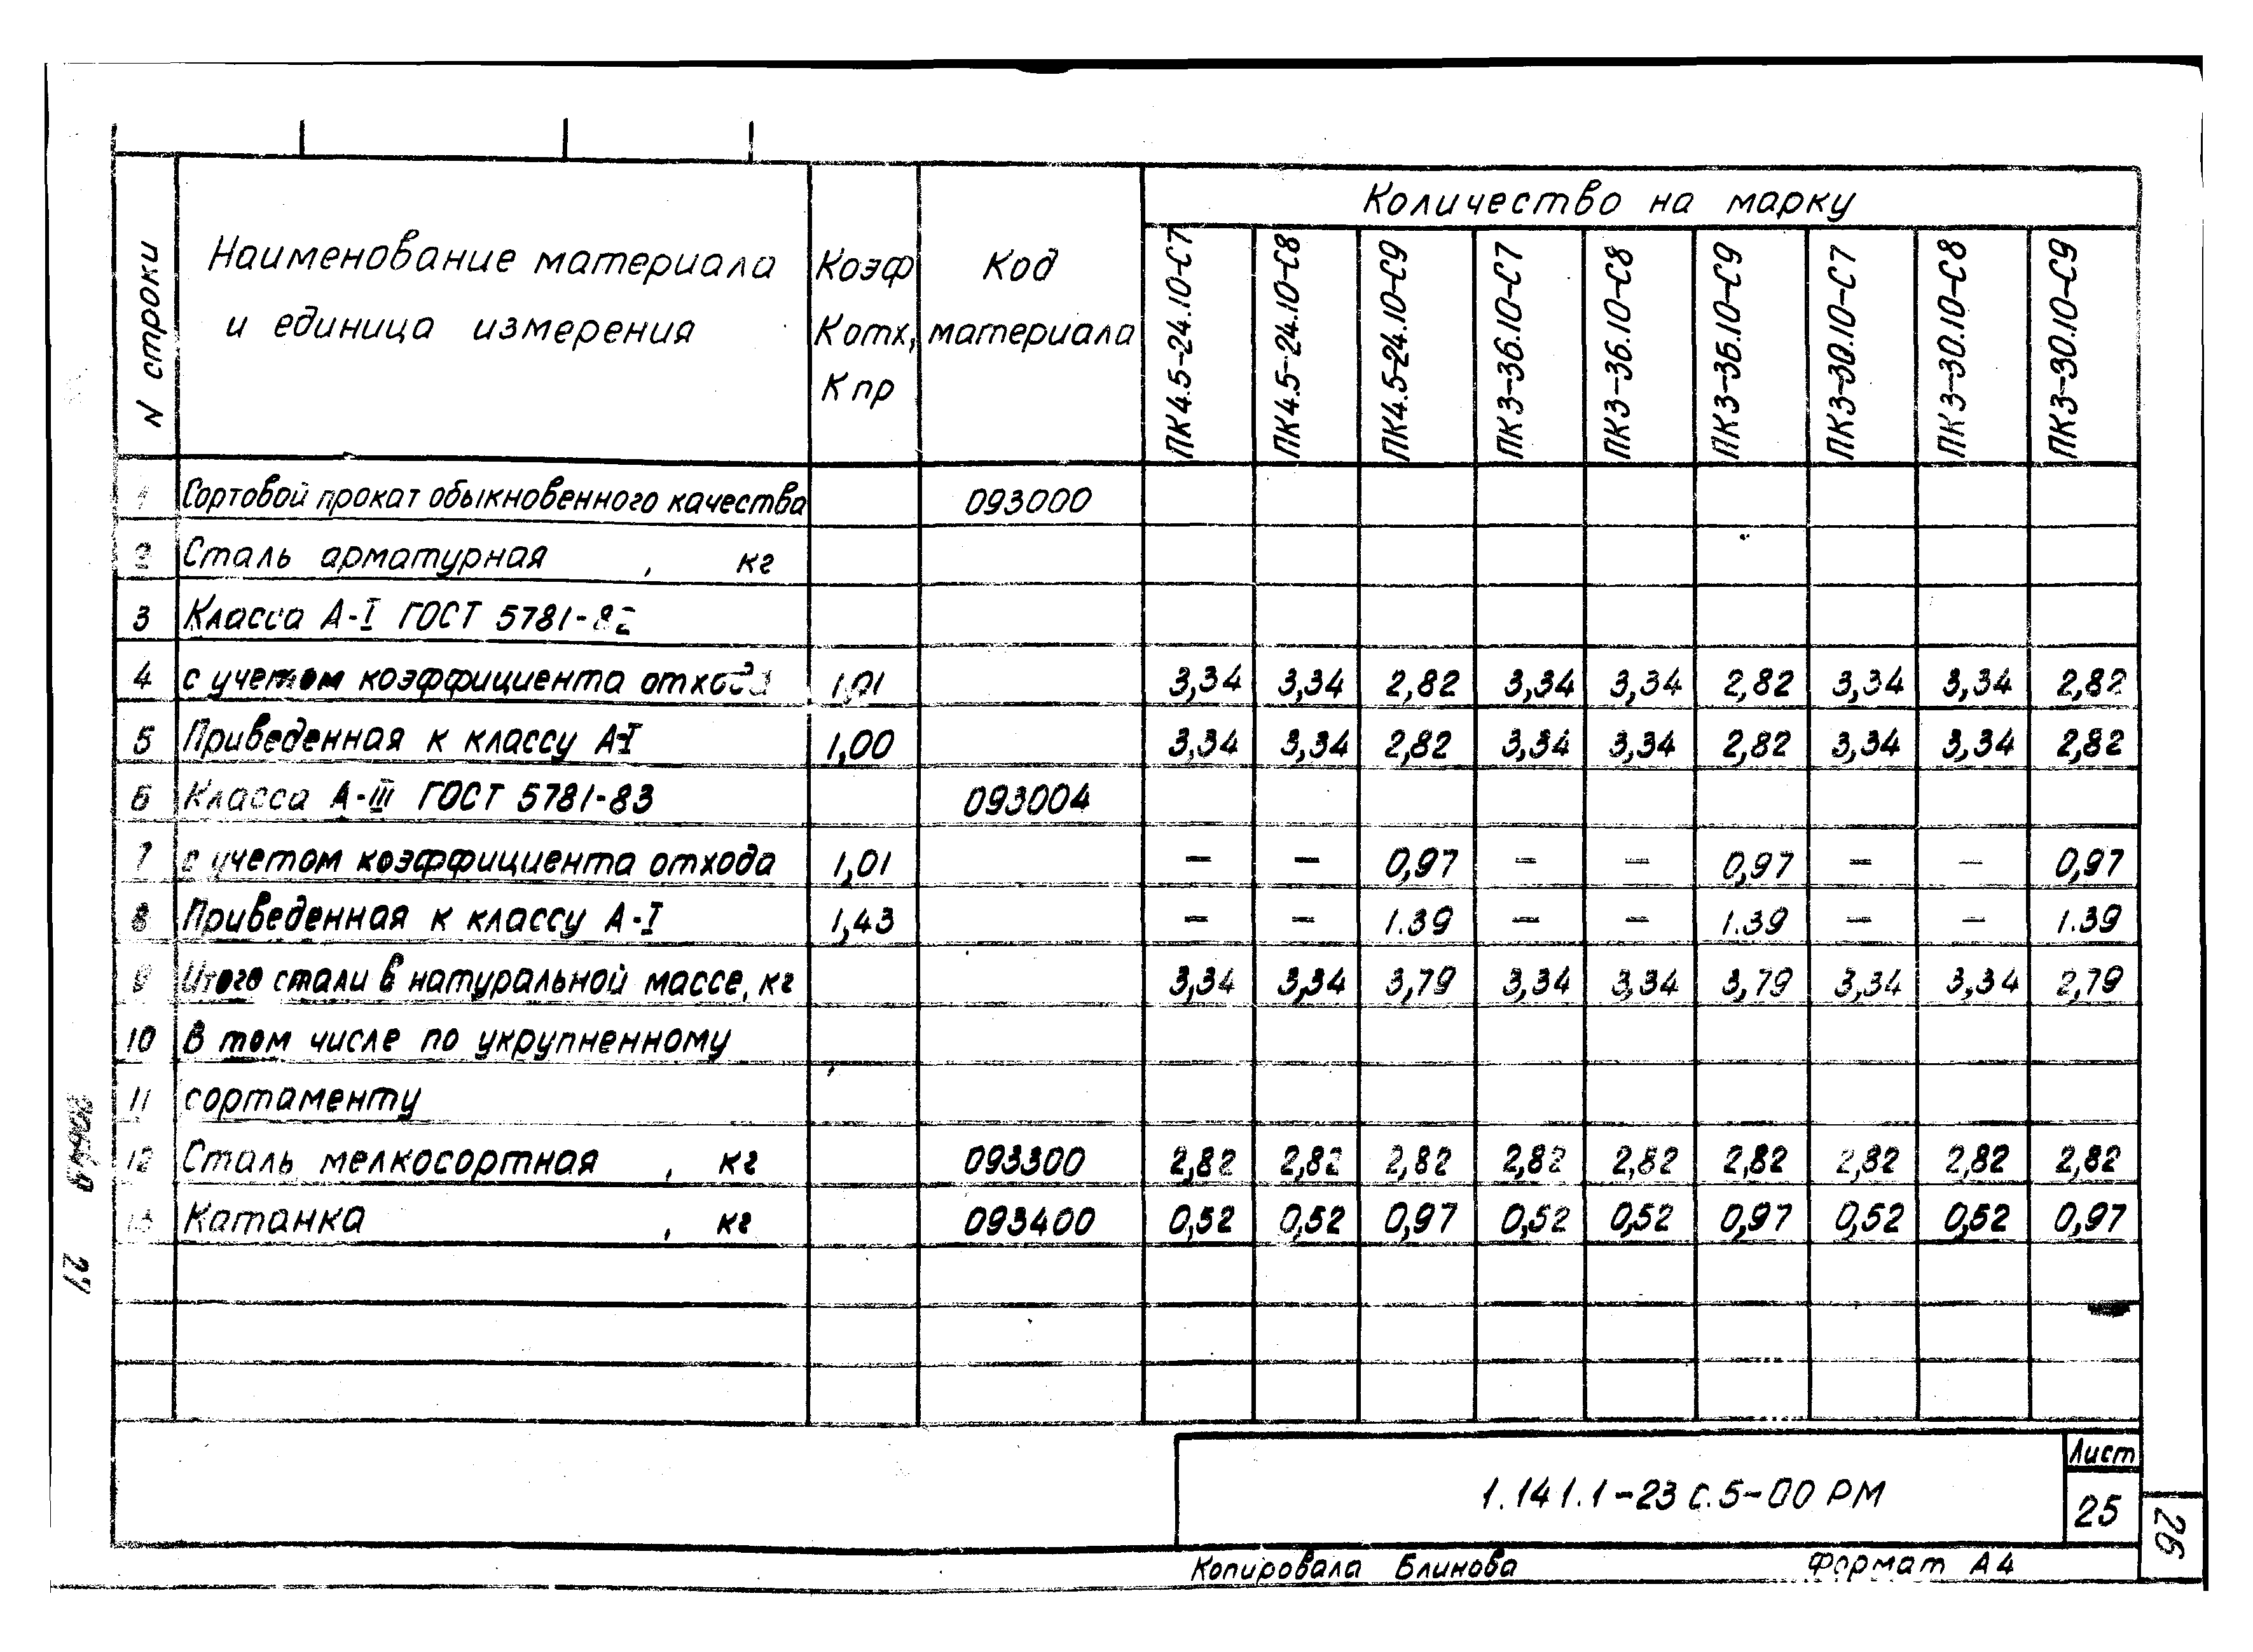 N строки
Наименование материала и единица измерения
Коэф Котх, Кпр
Код материала
Количество на марку
ПК4.5-24.10-С7
ПК4.5-24.10-С8
ПК4.5-24.10-С9
ПК3-36.10-С7
ПК3-36.10-С8
ПК3-36.10-С9
ПК3-30.10-С7
ПК3-30.10-С8
ПК3-30.10-С9
1 Сортовой прокат обыкновенного качества 093000
2 Сталь арматурная , кг
3 Класса А-I ГОСТ 5781-82
4 с учетом коэффициента отхода 1,01 3,34 3,34 2,82 3,34 3,34 2,82 3,34 3,34 2,82
5 Приведенная к классу А-I 1,00 3,34 3,34 2,82 3,34 3,34 2,82 3,34 3,34 2,82
6 Класса А-III ГОСТ 5781-83 093004
7 с учетом коэффициента отхода 1,01 – – 0,97 – – 0,97 – – 0,97
8 Приведенная к классу А-I 1,43 – – 1.39 – – 1.39 – – 1.39
9 Итого стали в натуральной массе, кг 3,34 3,34 3,79 3,34 3,34 3,79 3,34 3,34 2,79
10 В том числе по укрупненному
11 сортаменту
12 Сталь мелкосортная , кг 093300 2,82 2,82 2,82 2,82 2,82 2,82 2,82 2,82 2,82
13 Катанка , кг 093400 0,52 0,52 0,97 0,52 0,52 0,97 0,52 0,52 0,97
1.141.1-23 с.5-00 РМ
Лист
25
26
Копировала Блинова
Формат А4
27